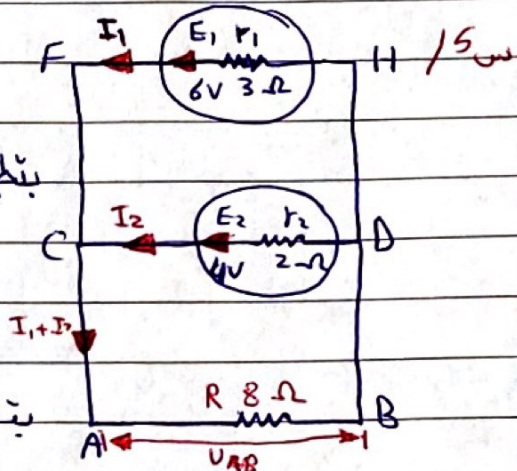 س5/
F I₁ E₁ r₁ H
6V 3 Ω
C I₂ E₂ r₂ D
4V 2 Ω
I₁+I₂
R 8 Ω
A B
U_AB